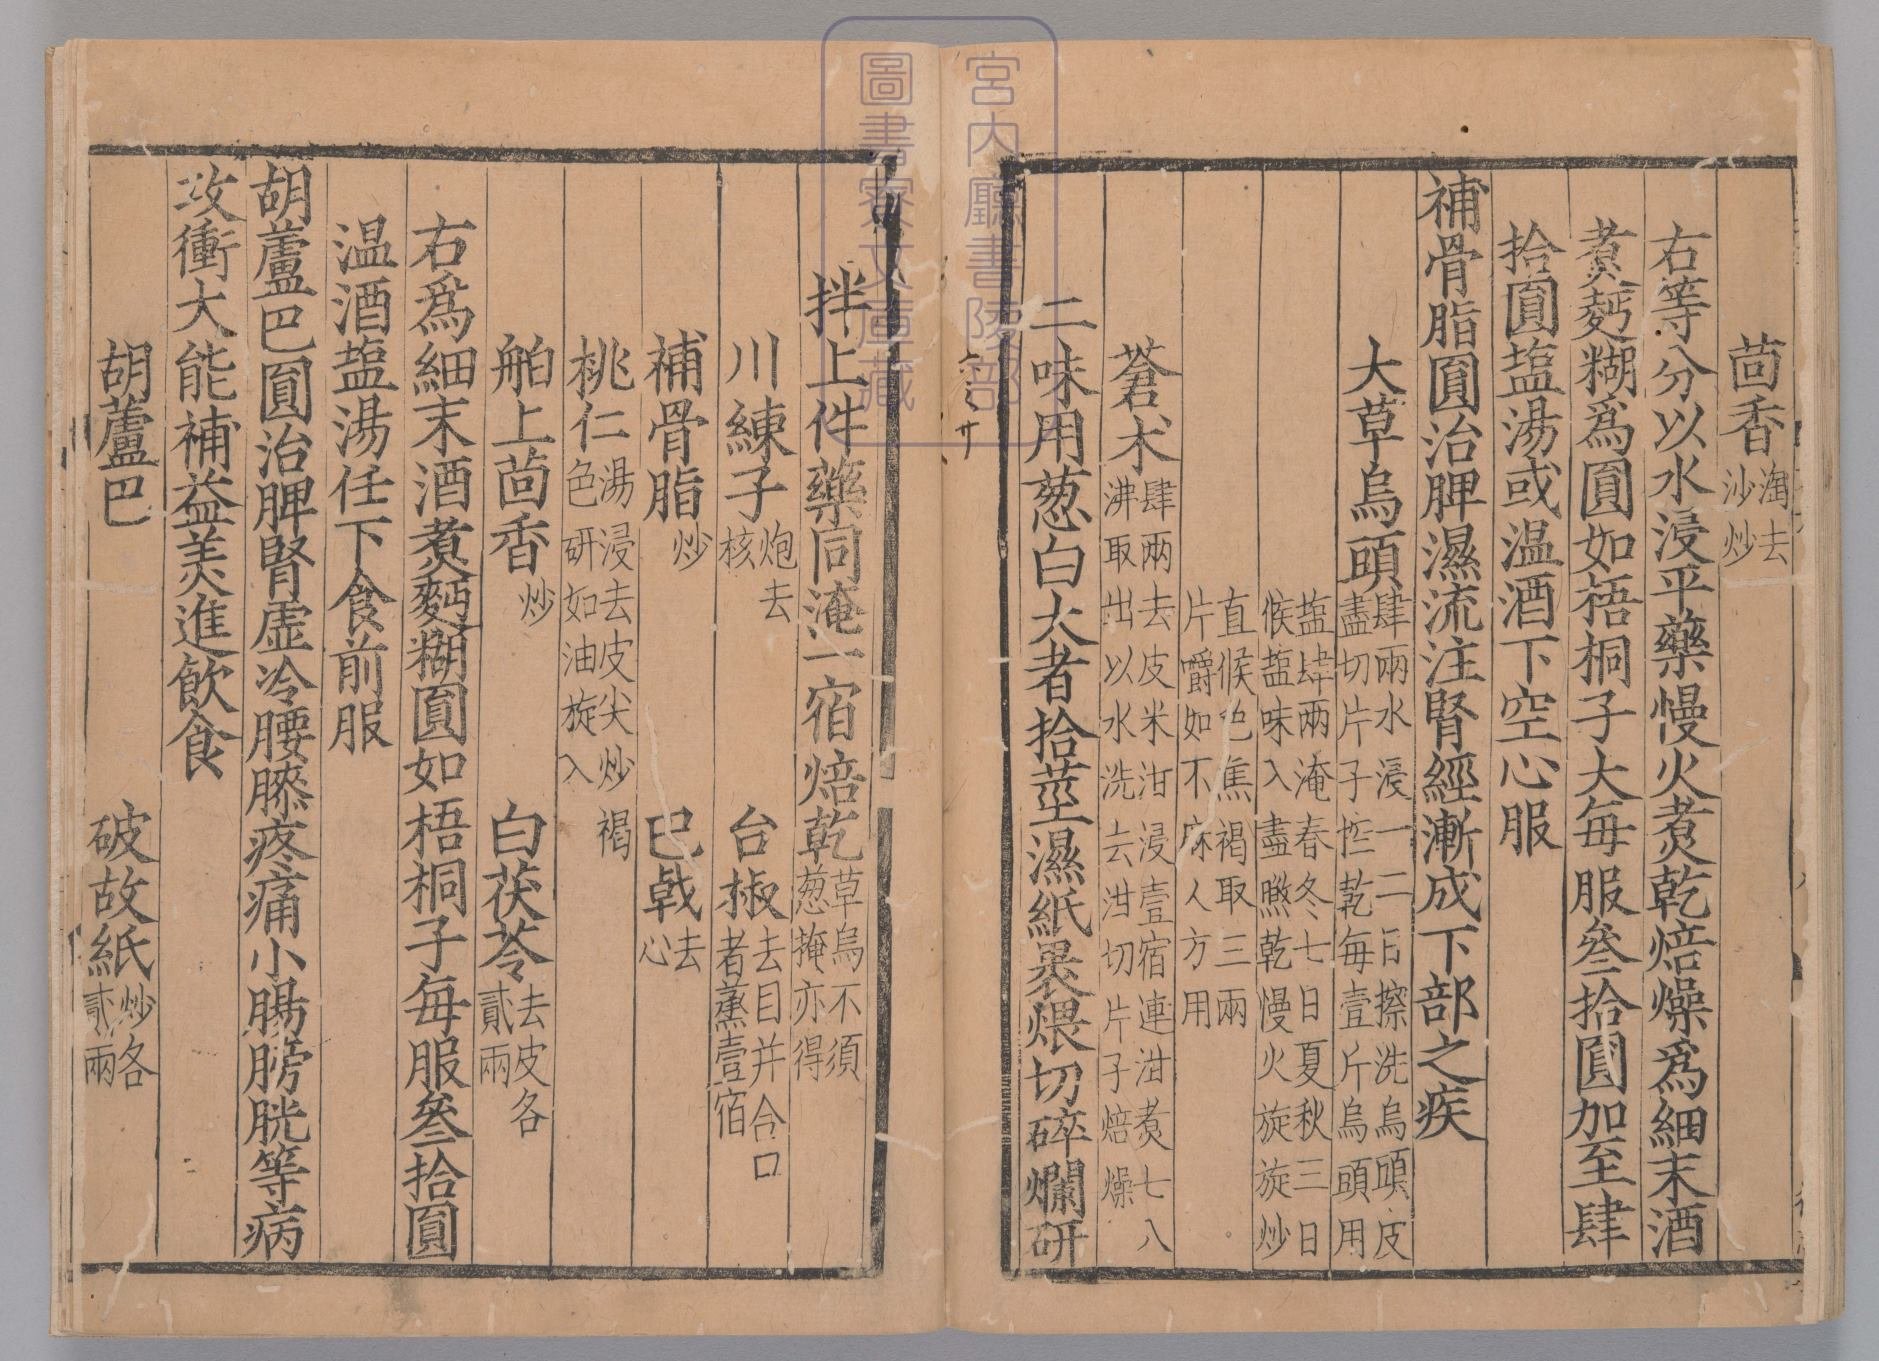 茴香淘去沙炒
右等分以水浸平藥慢火煮乾焙燥爲細末酒
煮麪糊爲圓如梧桐子大每服叄拾圓加至肆
拾圓鹽湯或温酒下空心服
補骨脂圓治脾濕流注腎經漸成下部之疾
大草烏頭肆兩水浸一二日擦洗烏頭皮盡切片子控乾每壹斤烏頭用
鹽肆兩淹春冬七日夏秋三日候鹽味入盡㬠乾慢火旋旋炒
直候色焦褐取三兩片嚼如不麻人方用
蒼术肆兩去皮米泔浸壹宿連泔煮七八沸取出以水洗去泔切片子焙燥
二味用葱白大者拾莖濕紙裹煨切碎爛研
拌上件藥同淹一宿焙乾草烏不須葱掩亦得
川練子炮去核 台椒去目并合口者蒸壹宿
補骨脂炒 巴戟去心
桃仁湯浸去皮尖炒褐色研如油旋入
舶上茴香炒 白茯苓去皮各貳兩
右爲細末酒煮麪糊圓如梧桐子每服叄拾圓
温酒鹽湯任下食前服
胡蘆巴圓治脾腎虛冷腰膝疼痛小腸膀胱等病
攻衝大能補益美進飲食
胡蘆巴 破故紙炒各貳兩
宮内廳書陵部
圖書寮文庫藏